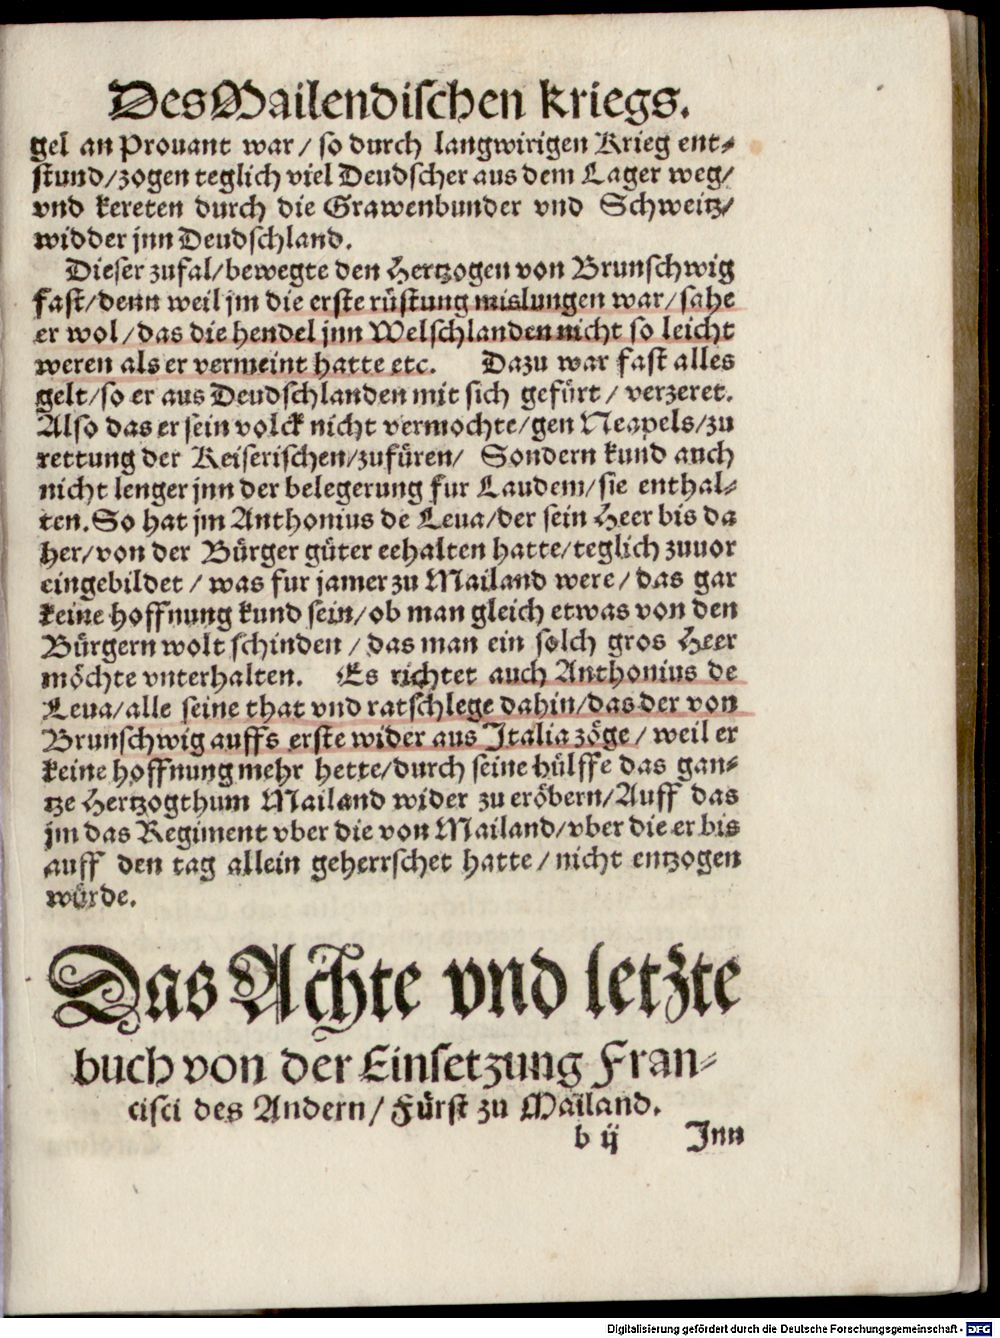 Des Mailendischen kriegs.
gel an Prouant war / so durch langwirigen Krieg ent-
stund/zogen teglich viel Deudscher aus dem Lager weg/
vnd kereten durch die Grawenbunder vnd Schweitz/
widder jnn Deudschland.
Dieser zufal/bewegte den Hertzogen von Brunschwig
fast/denn weil jm die erste rüstung mislungen war/sahe
er wol/das die hendel jnn Welschlanden nicht so leicht
weren als er vermeint hatte etc. Dazu war fast alles
gelt/so er aus Deudschlanden mit sich gefürt / verzeret.
Also das er sein volck nicht vermochte/gen Neapels/zu
rettung der Keiserischen/zufüren/ Sondern kund auch
nicht lenger jnn der belegerung fur Laudem/sie enthal-
ten. So hat jm Anthonius de Leua/der sein Heer bis da
her/von der Bürger güter eehalten hatte/teglich zuuor
eingebildet / was fur jamer zu Mailand were/das gar
keine hoffnung kund sein/ob man gleich etwas von den
Bürgern wolt schinden / das man ein solch gros Heer
möchte vnterhalten. Es richtet auch Anthonius de
Leua/alle seine that vnd ratschlege dahin/das der von
Brunschwig auffs erste wider aus Italia zöge/ weil er
keine hoffnung mehr hette/durch seine hülffe das gan-
tze Hertzogthum Mailand wider zu eröbern/Auff das
jm das Regiment vber die von Mailand/vber die er bis
auff den tag allein geherrschet hatte / nicht entzogen
würde.
Das Achte vnd letzte
buch von der Einsetzung Fran-
cisci des Andern/ Fürst zu Mailand.
b ij Jnn
Digitalisierung gefördert durch die Deutsche Forschungsgemeinschaft - DFG